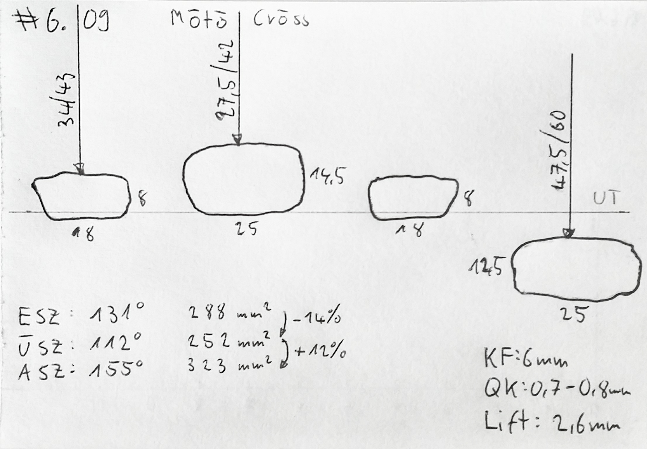 #6.09 Mōtō Crōss
34/43
27,5/42
47,5/60
8
14,5
8
UT
18
25
18
12,5
25
ESZ: 131° 288 mm² -14%
ÜSZ: 112° 252 mm² +12%
ASZ: 155° 323 mm²
KF: 6mm
QK: 0,7-0,8mm
Lift: 2,6mm